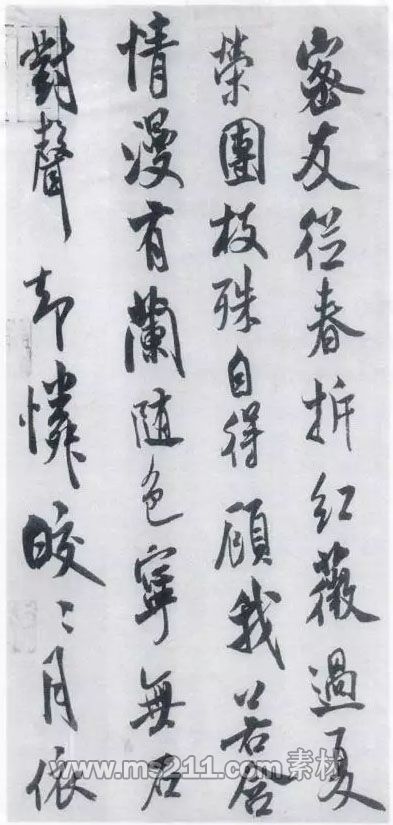 密友從春拆紅薇過夏
榮團枝殊自得顧我若含
情漫有蘭隨色寧無石
對聲却憐皎〻月依
www.ms211.com素材